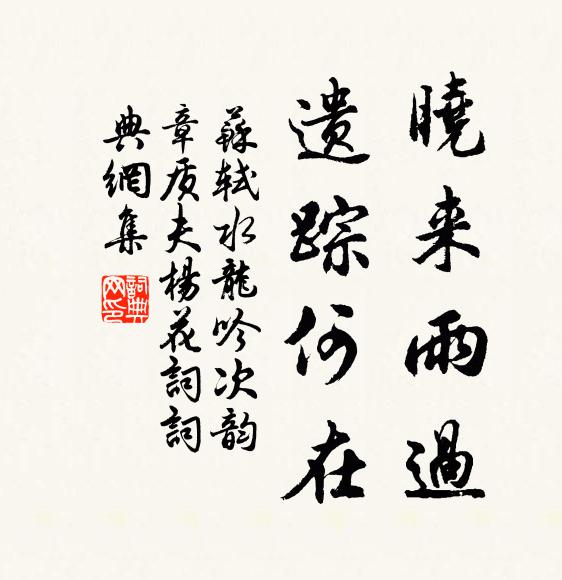 曉来雨過
遗踪何在
蘇轼水龍吟次韵
章质夫楊花詞詞
典網集
詞典网印